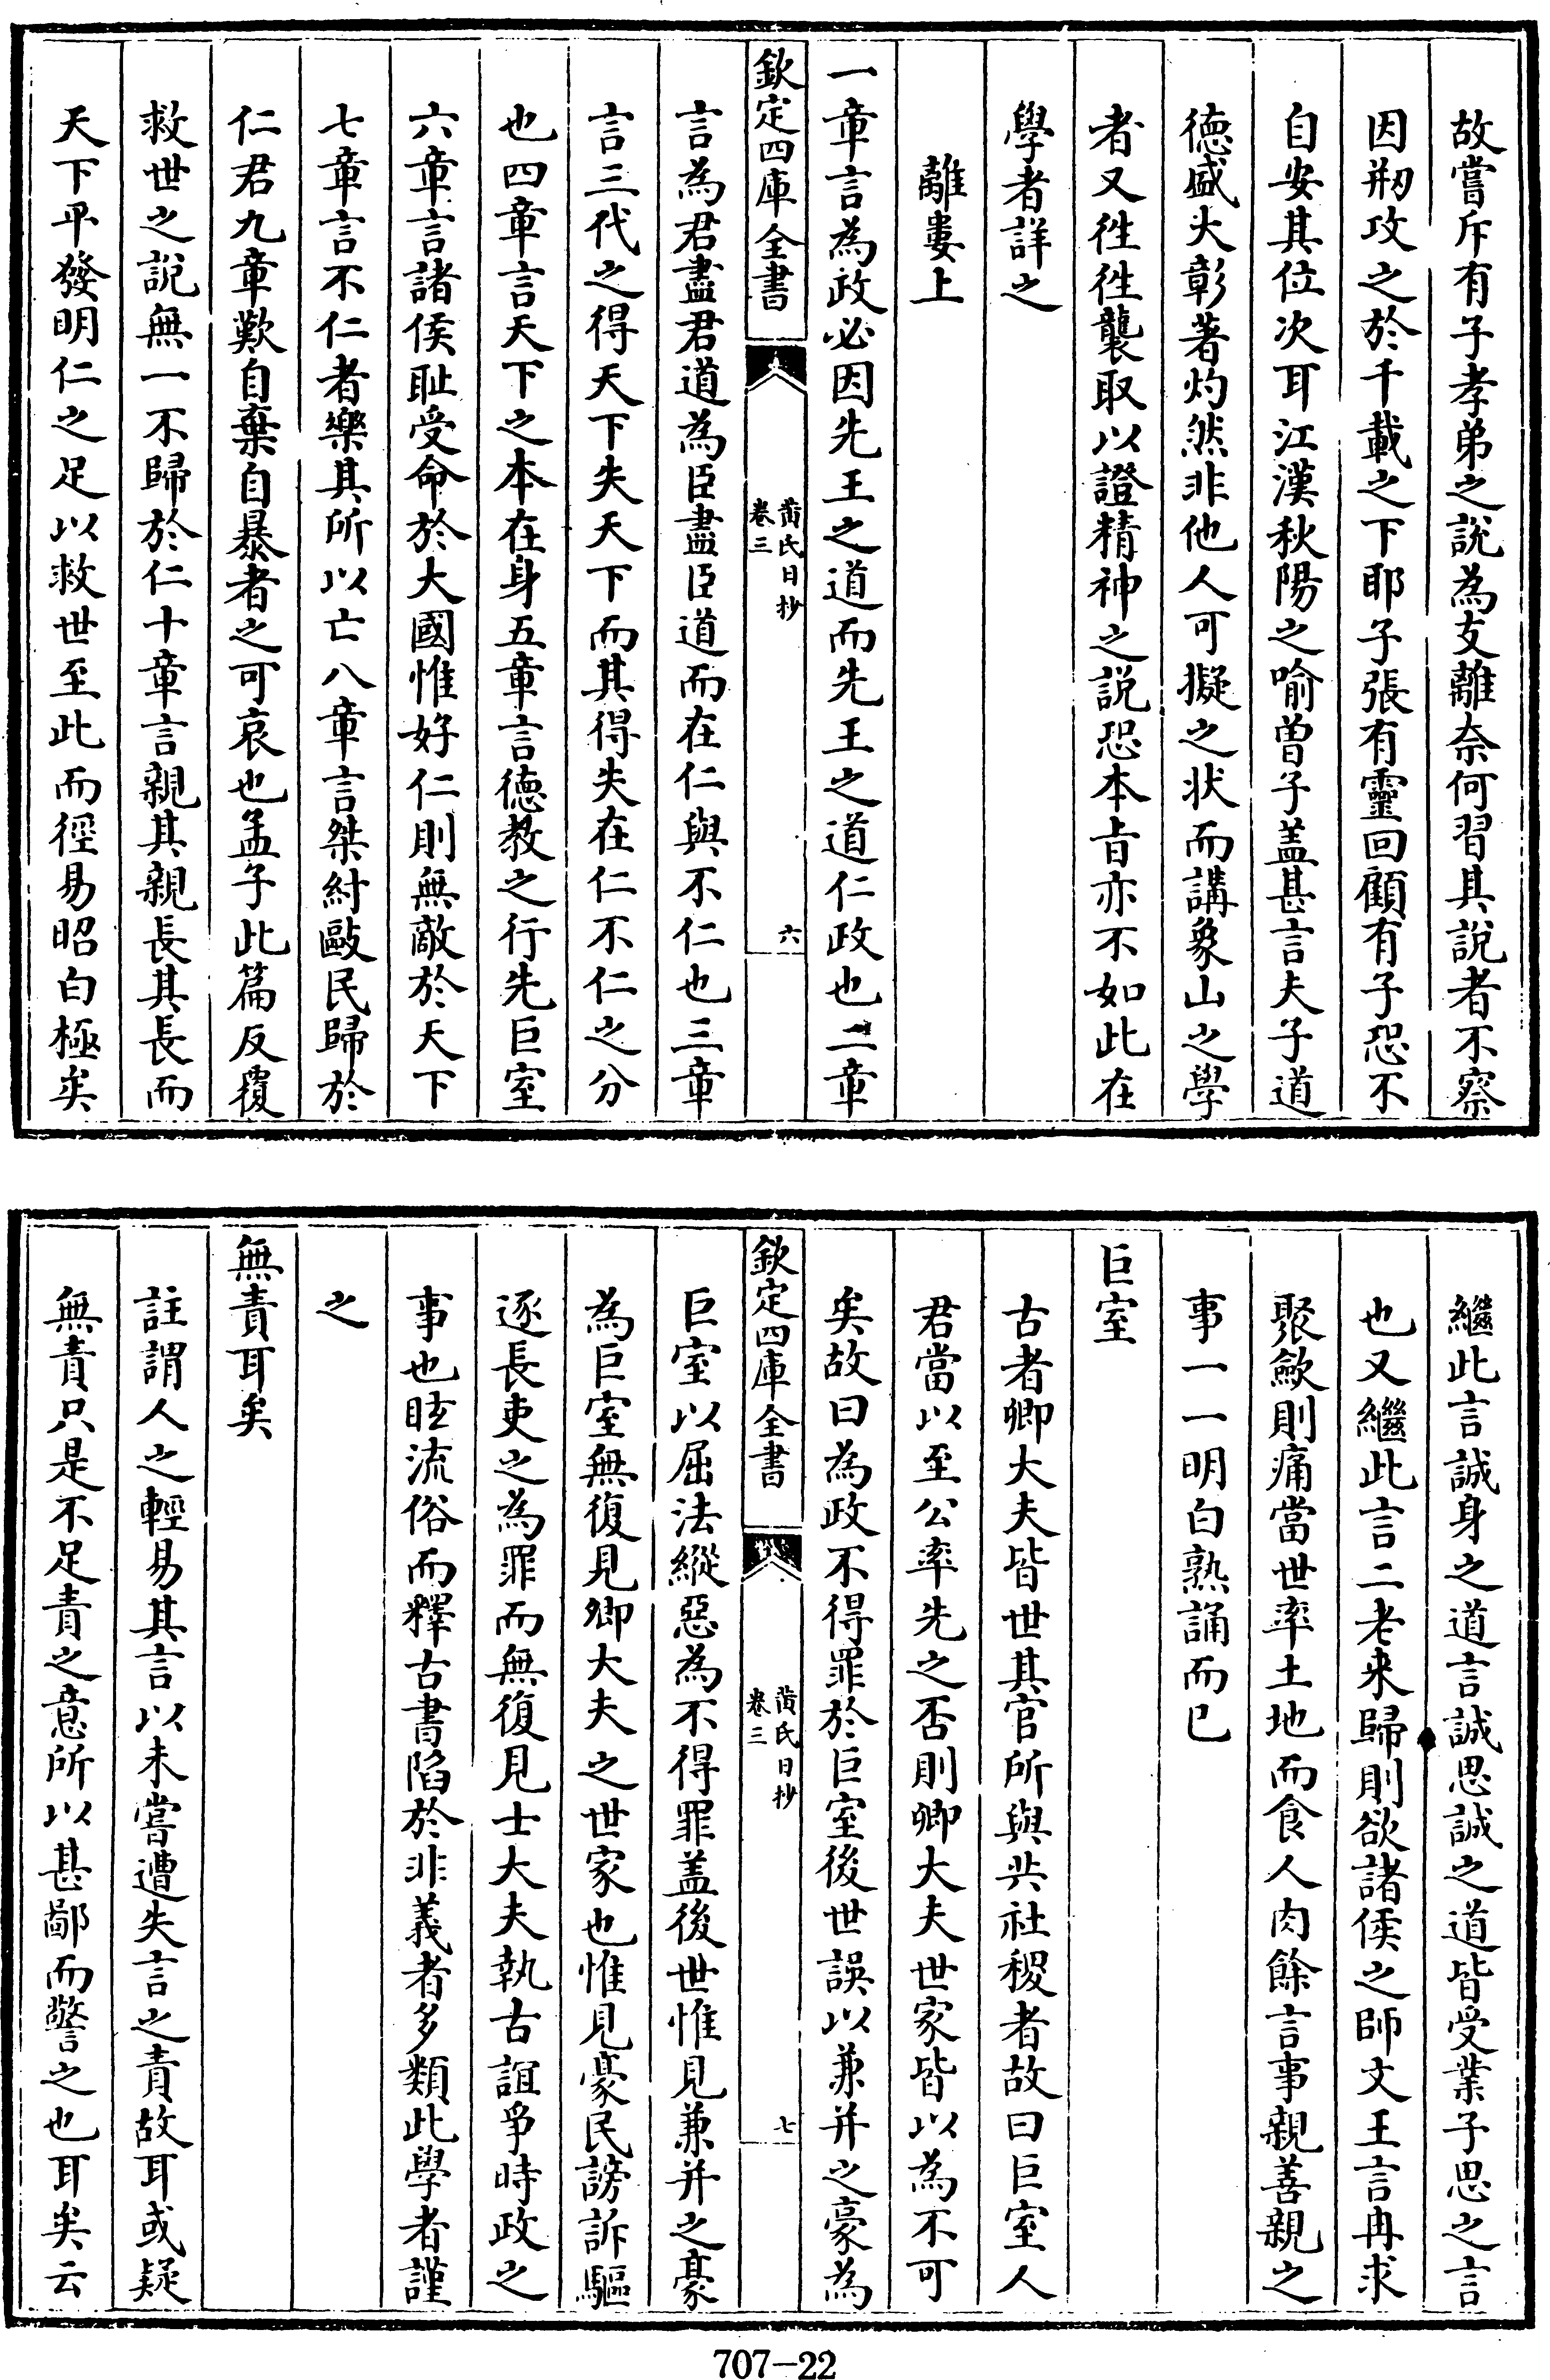 故嘗斥有子孝弟之說為支離奈何習其說者不察
因剏攻之於千載之下耶子張有靈回顧有子恐不
自安其位次耳江漢秋陽之喻曽子盖甚言夫子道
德盛大彰著灼然非他人可擬之状而講象山之學
者又徃徃襲取以證精神之説恐本旨亦不如此在
學者詳之
離婁上
一章言為政必因先王之道而先王之道仁政也二章
欽定四庫全書
黄氏日抄
卷三
六
言為君盡君道為臣盡臣道而在仁與不仁也三章
言三代之得天下失天下而其得失在仁不仁之分
也四章言天下之本在身五章言德教之行先巨室
六章言諸侯耻受命於大國惟好仁則無敵於天下
七章言不仁者樂其所以亡八章言桀紂敺民歸於
仁君九章歎自棄自暴者之可哀也孟子此篇反覆
救世之說無一不歸於仁十章言親其親長其長而
天下平發明仁之足以救世至此而徑易昭白極矣
繼此言誠身之道言誠思誠之道皆受業子思之言
也又繼此言二老来歸則欲諸侯之師文王言冉求
聚歛則痛當世率土地而食人肉餘言事親善親之
事一一明白熟誦而已
巨室
古者卿大夫皆世其官所與共社稷者故曰巨室人
君當以至公率先之否則卿大夫世家皆以為不可
矣故曰為政不得罪於巨室後世誤以兼并之豪為
欽定四庫全書
黄氏日抄
卷三
七
巨室以屈法縱惡為不得罪盖後世惟見兼并之豪
為巨室無復見卿大夫之世家也惟見豪民謗訴驅
逐長吏之為罪而無復見士大夫執古誼爭時政之
事也眩流俗而釋古書陷於非義者多類此學者謹
之
無責耳矣
註謂人之輕易其言以未嘗遭失言之責故耳或疑
無責只是不足責之意所以甚鄙而警之也耳矣云
707-22